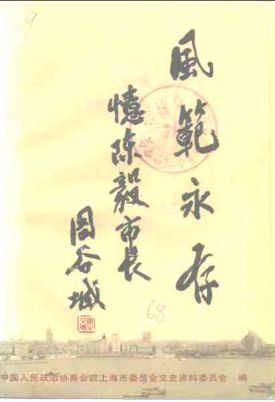 風範永存
憶陳毅市長
周谷城
68
中国人民政治协商会议上海市委员会文史资料委员会 编